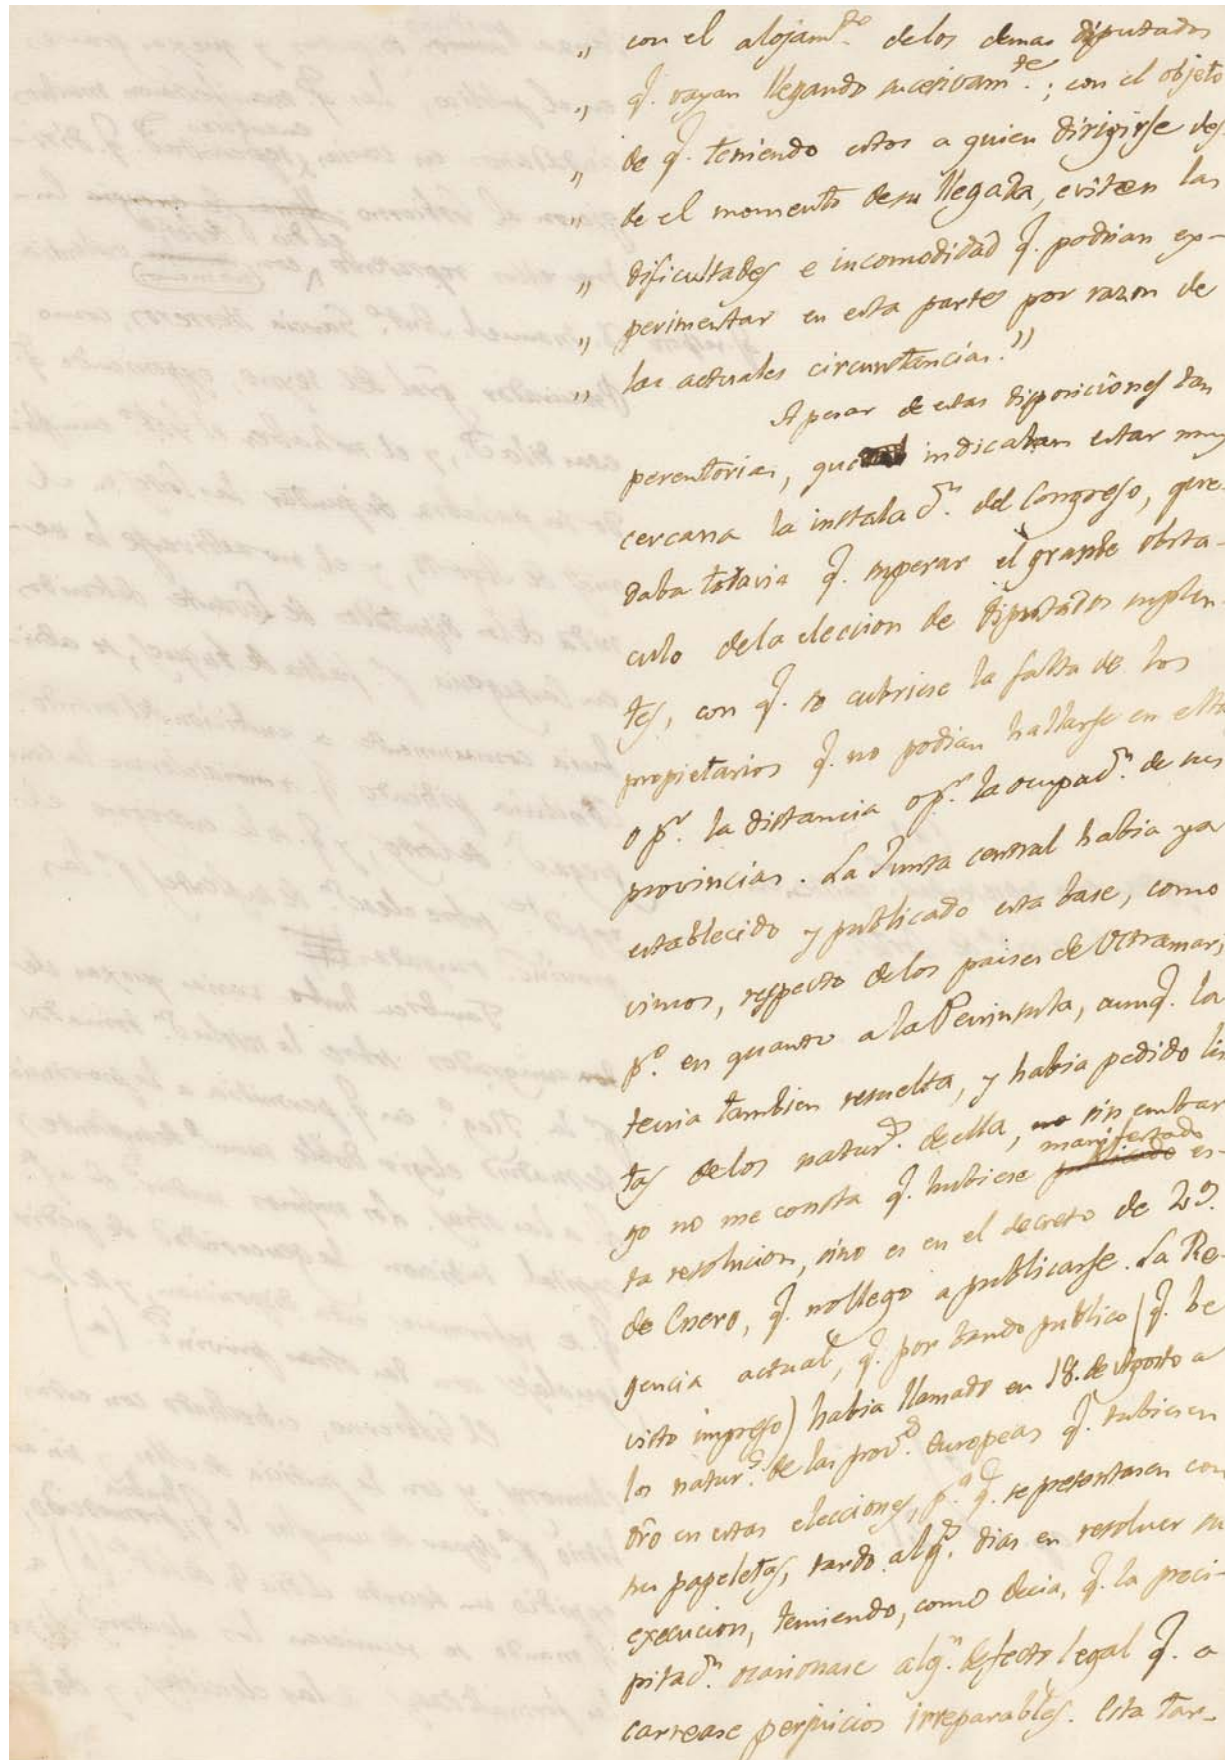 „ con el alojam.to delos demas diputados
„ q. vayan llegando sucesivam.te; con el objeto
„ de q. teniendo estos a quien dirigirse des
„ de el momento de su llegada, eviten las
„ dificultades e incomodidad q. podrian ex-
„ perimentar en esta partes por razon de
„ las actuales circunstancias.”
Apesar de estas disposiciones tan
perentorias, que indicaban estar muy
cercana la instalac.n del Congreso, que-
daba todavia q. superar el grande obsta-
culo dela eleccion de diputados suplen
tes, con q. se cubriese la falta de los
propietarios q. no podian hallarse en ella
o p.r la distancia o p.r la ocupac.n de sus
provincias. La Junta central habia ya
establecido y publicado esta base, como
vimos, respecto delos paises de Ultramar;
p.o en quanto a la Peninsula, aunq. la
tenia tambien resuelta, y habia pedido lis
tas delos natur.s de ella, no sin embar
go no me consta q. hubiese publicado manifestado es-
ta resolucion, sino es en el decreto de 29.
de Enero, q. no llego a publicarse. La Re-
gencia actual, q. por bando publico (q. he
visto impreso) habia llamado en 18. de Agosto a
los natur.s de las prov.s europeas q. tubiesen
dro en estas elecciones, p.a q. se presentasen con
sus papeletas, tardo alg.s dias en resolver su
execucion, temiendo, como decia, q. la preci-
pitac.n ocasionase alg.n defecto legal q. a
carrease perjuicios irreparables. Esta tar-